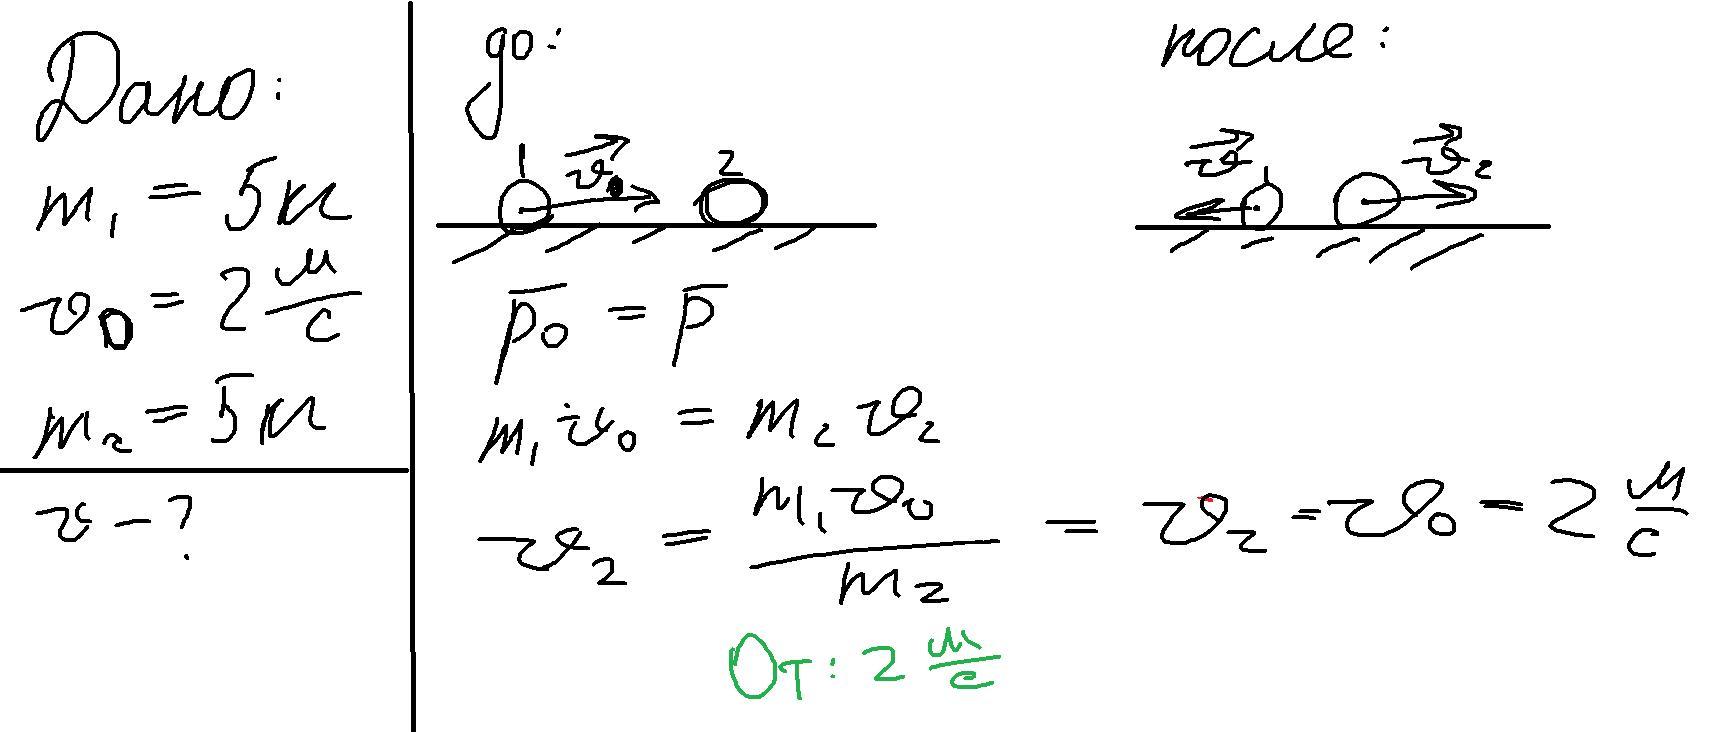 Дано:
m₁ = 5кг
v₀ = 2 м/с
m₂ = 5кг
v – ?
до:
1 v⃗₀ 2
после:
v⃗ 1 v⃗₂
p̅₀ = p̅
m₁v₀ = m₂v₂
v₂ = m₁v₀/m₂ = v₂ = v₀ = 2 м/с
От: 2 м/с